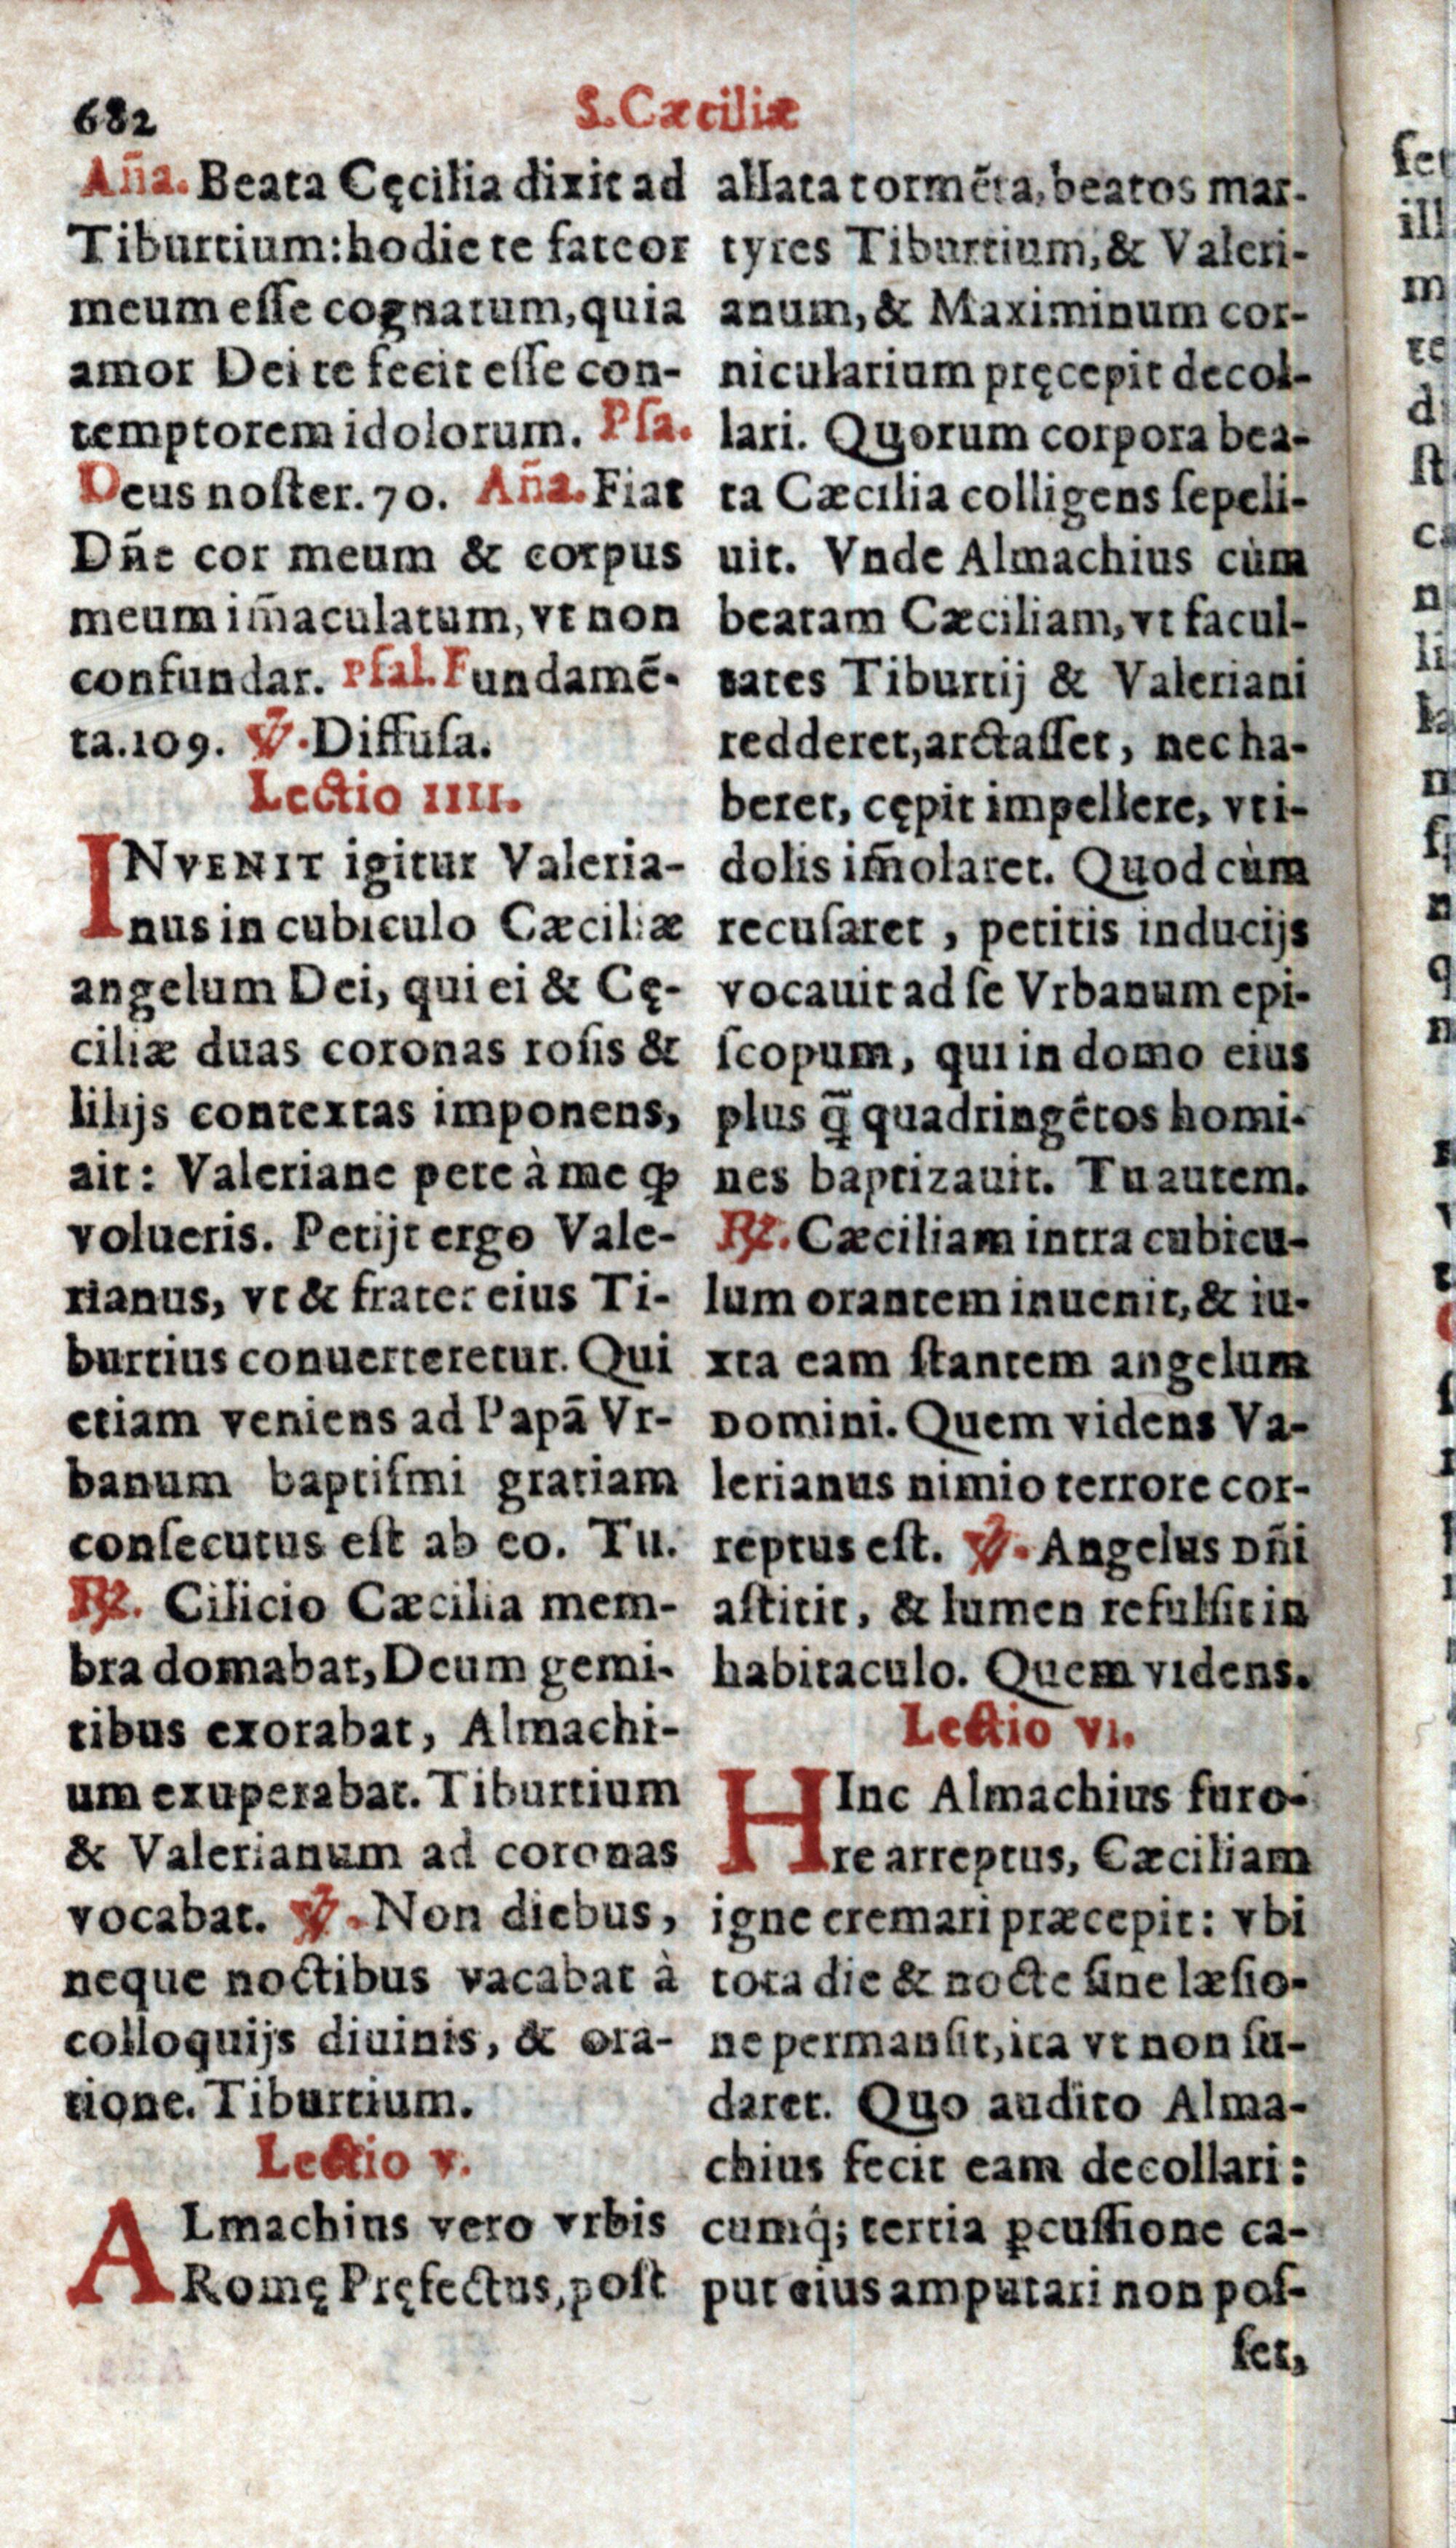 682
S. Cæciliæ
Aña. Beata Cęcilia dixit ad
Tiburtium: hodie te fateor
meum eſſe cognatum, quia
amor Dei te fecit eſſe con-
temptorem idolorum. Pſa.
Deus noſter. 70. Aña. Fiat
Dñe cor meum & corpus
meum im̃aculatum, vt non
confundar. pſal. Fundamẽ-
ta. 109. ℣. Diffuſa.
Lectio IIII.
INVENIT igitur Valeria-
nus in cubiculo Cæciliæ
angelum Dei, qui ei & Cę-
ciliæ duas coronas roſis &
lilijs contextas imponens,
ait: Valeriane pete à me ꝙ
volueris. Petijt ergo Vale-
rianus, vt & frater eius Ti-
burtius conuerteretur. Qui
etiam veniens ad Papã Vr-
banum baptiſmi gratiam
conſecutus eſt ab eo. Tu.
℟. Cilicio Cæcilia mem-
bra domabat, Deum gemi-
tibus exorabat, Almachi-
um exuperabat. Tiburtium
& Valerianum ad coronas
vocabat. ℣. Non diebus,
neque noctibus vacabat à
colloquijs diuinis, & ora-
tione. Tiburtium.
Lectio v.
ALmachius vero vrbis
Romę Pręfectus, poſt
allata tormẽta, beatos mar-
tyres Tiburtium, & Valeri-
anum, & Maximinum cor-
nicularium pręcepit decol-
lari. Quorum corpora bea-
ta Cæcilia colligens ſepeli-
uit. Vnde Almachius cùm
beatam Cæciliam, vt facul-
tates Tiburtij & Valeriani
redderet, arctaſſet, nec ha-
beret, cępit impellere, vt i-
dolis im̃olaret. Quod cùm
recuſaret, petitis inducijs
vocauit ad ſe Vrbanum epi-
ſcopum, qui in domo eius
plus q̃ quadringẽtos homi-
nes baptizauit. Tu autem.
℟. Cæciliam intra cubicu-
lum orantem inuenit, & iu-
xta eam ſtantem angelum
Domini. Quem videns Va-
lerianus nimio terrore cor-
reptus eſt. ℣. Angelus Dñi
aſtitit, & lumen refulſit in
habitaculo. Quem videns.
Lectio VI.
HInc Almachius furo-
re arreptus, Cæciliam
igne cremari præcepit: vbi
tota die & nocte ſine læſio-
ne permanſit, ita vt non ſu-
daret. Quo audito Alma-
chius fecit eam decollari:
cumq́; tertia ꝑcuſſione ca-
put eius amputari non poſ-
ſet,